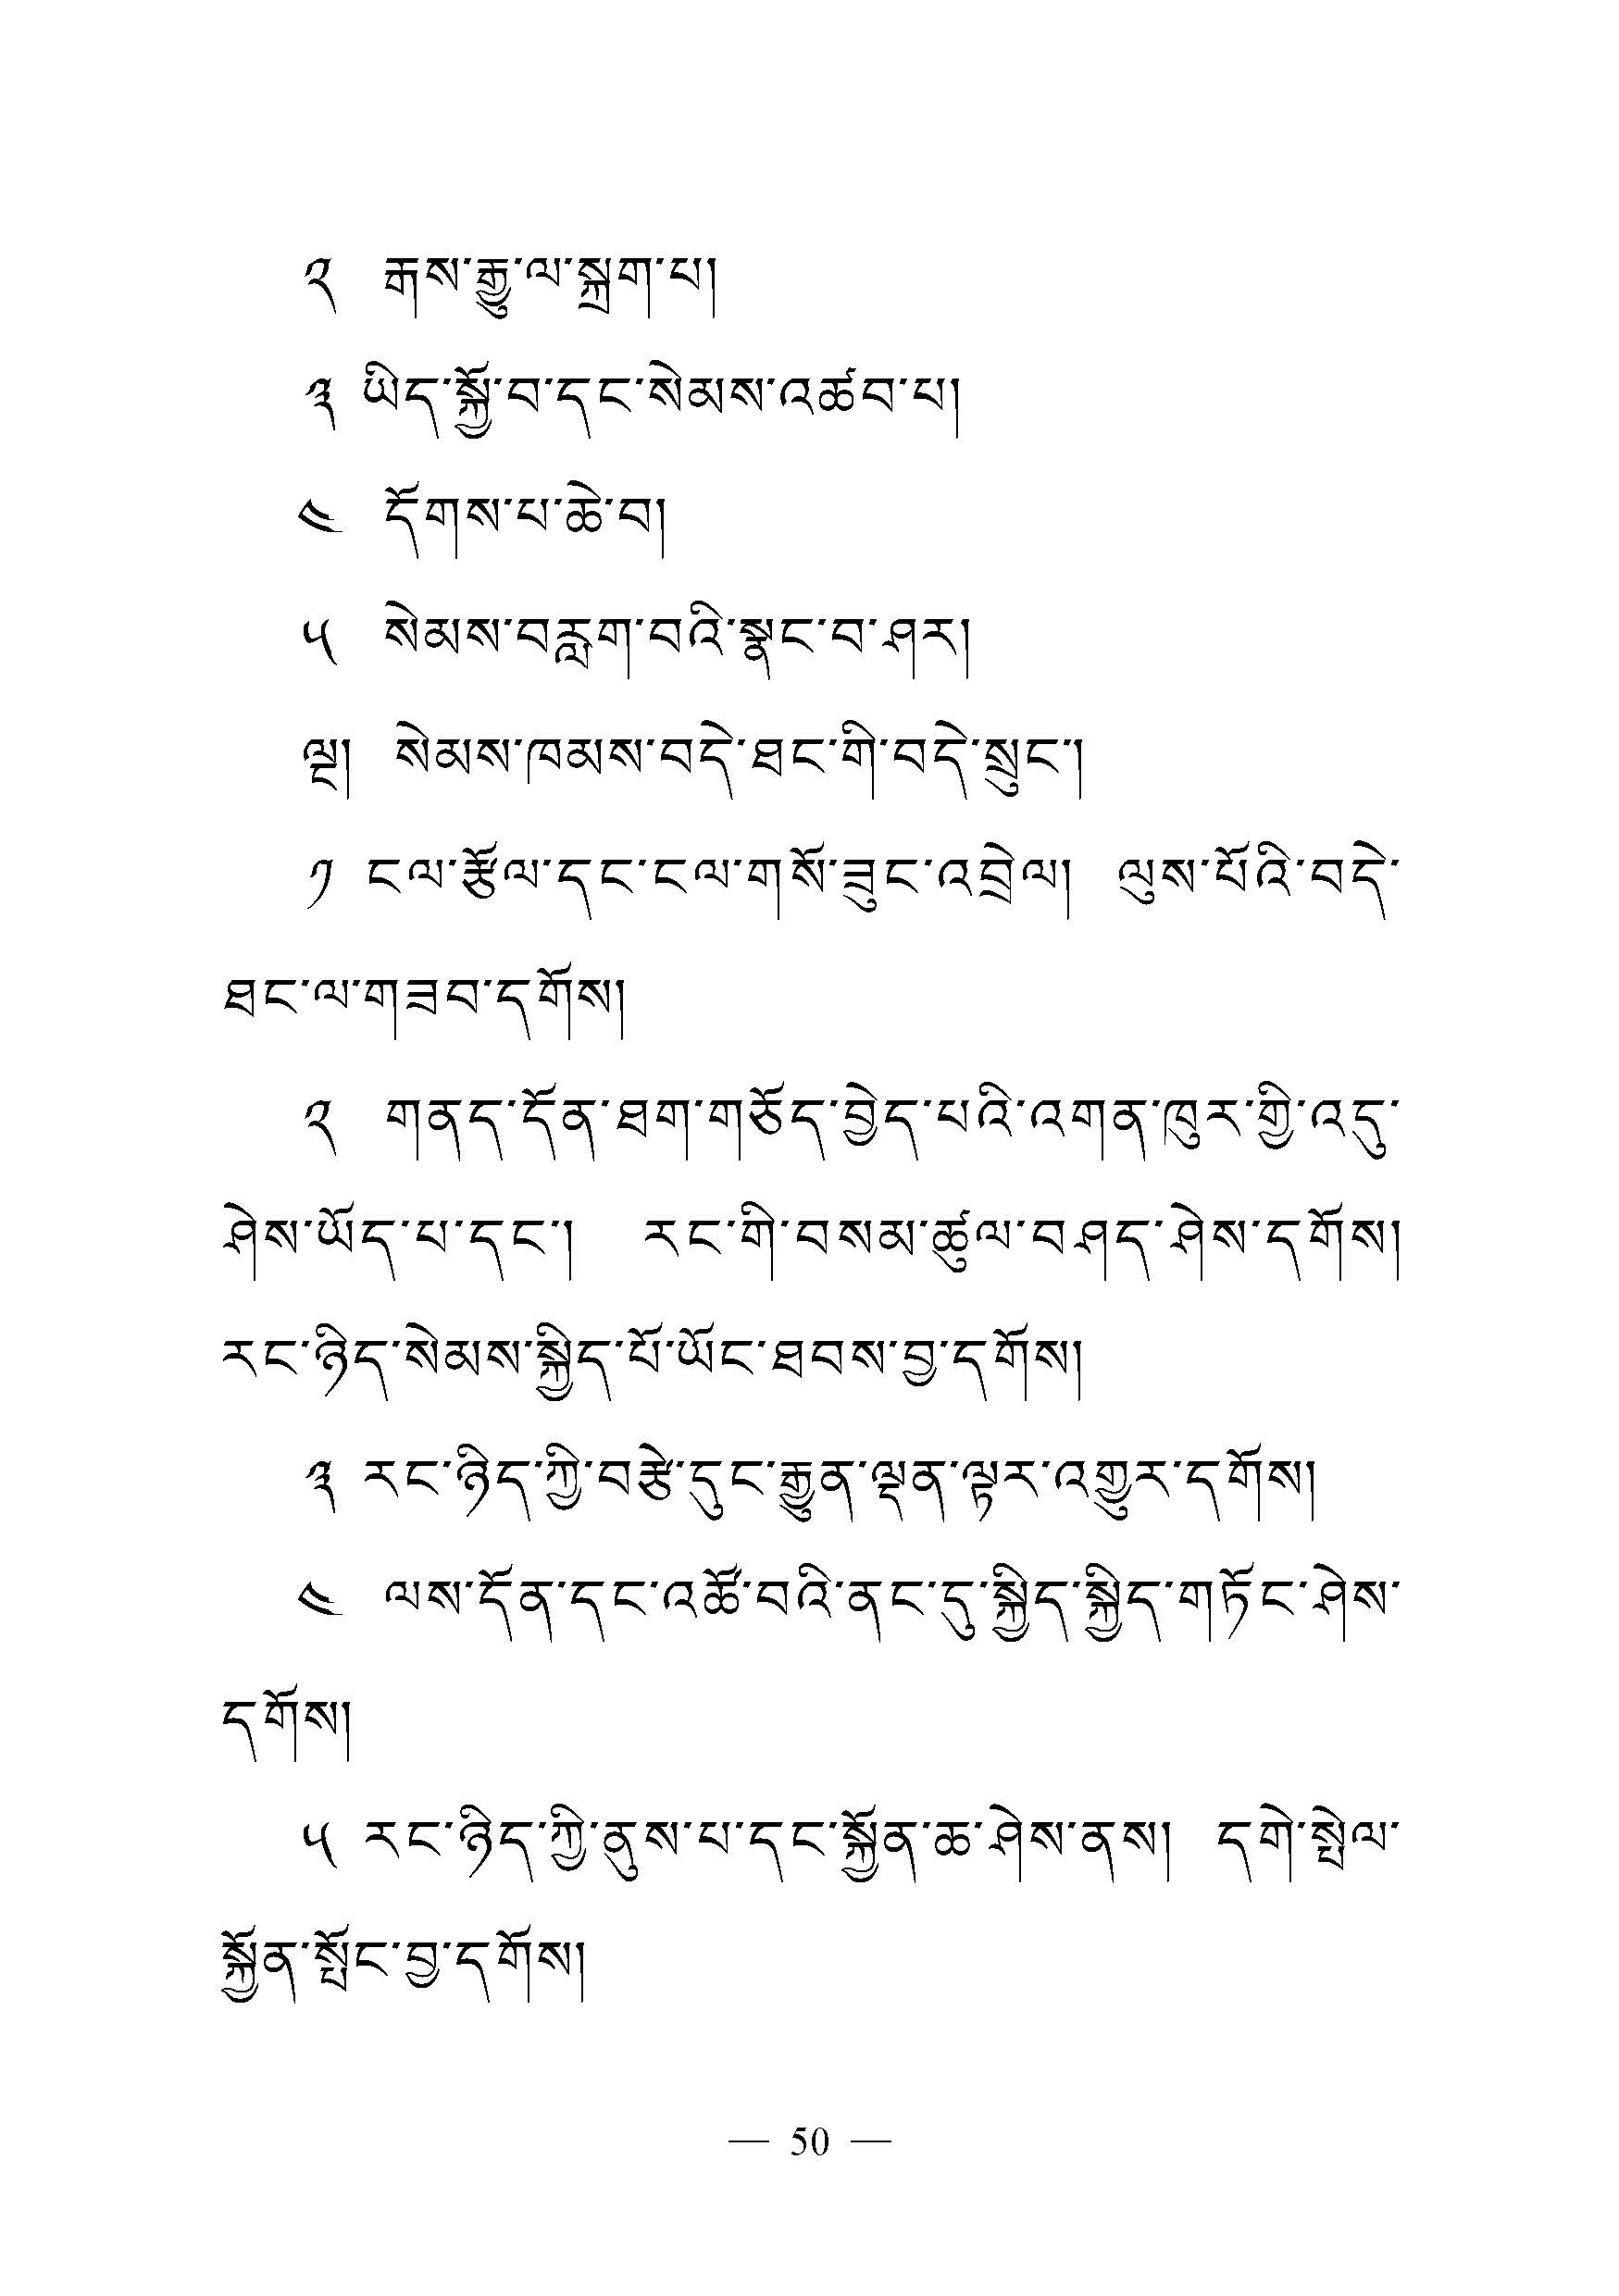 ༢ རྒས་རྒྱུ་ལ་སྐྲག་པ།
༣ ཡིད་སྐྱོ་བ་དང་སེམས་འཚབ་པ།
༤ དོགས་པ་ཆེ་བ།
༥ སེམས་བརླག་བའི་སྣང་བ་ཤར།
ལྔ། སེམས་ཁམས་བདེ་ཐང་གི་བདེ་སྲུང་།
༡ ངལ་རྩོལ་དང་ངལ་གསོ་ཟུང་འབྲེལ། ལུས་པོའི་བདེ་
ཐང་ལ་གཟབ་དགོས།
༢ གནད་དོན་ཐག་གཅོད་བྱེད་པའི་འགན་ཁུར་གྱི་འདུ་
ཤེས་ཡོད་པ་དང་། རང་གི་བསམ་ཚུལ་བཤད་ཤེས་དགོས།
རང་ཉིད་སེམས་སྐྱིད་པོ་ཡོང་ཐབས་བྱ་དགོས།
༣ རང་ཉིད་ཀྱི་བརྩེ་དུང་རྒྱུན་ལྡན་ལྟར་འགྱུར་དགོས།
༤ ལས་དོན་དང་འཚོ་བའི་ནང་དུ་སྐྱིད་སྐྱིད་གཏོང་ཤེས་
དགོས།
༥ རང་ཉིད་ཀྱི་ནུས་པ་དང་སྐྱོན་ཆ་ཤེས་ནས། དགེ་སྤེལ་
སྐྱོན་སྤོང་བྱ་དགོས།
— 50 —